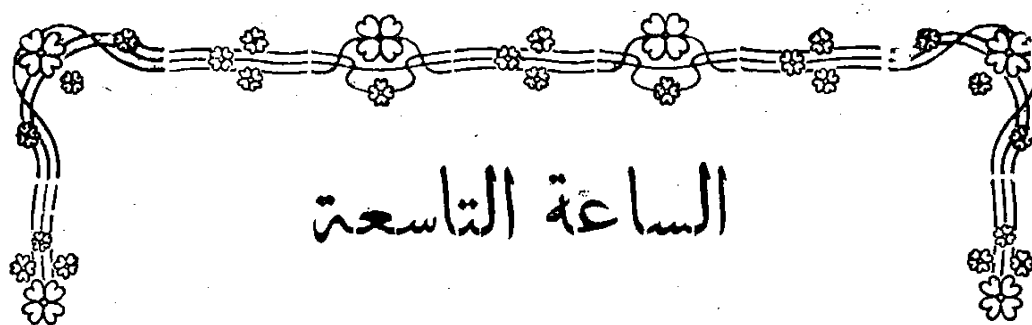 الساعة التاسعة